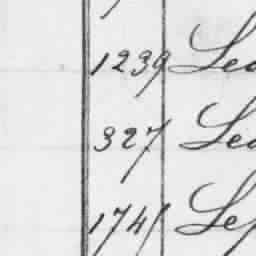 1239 Lea
327 Lea
1741 Le